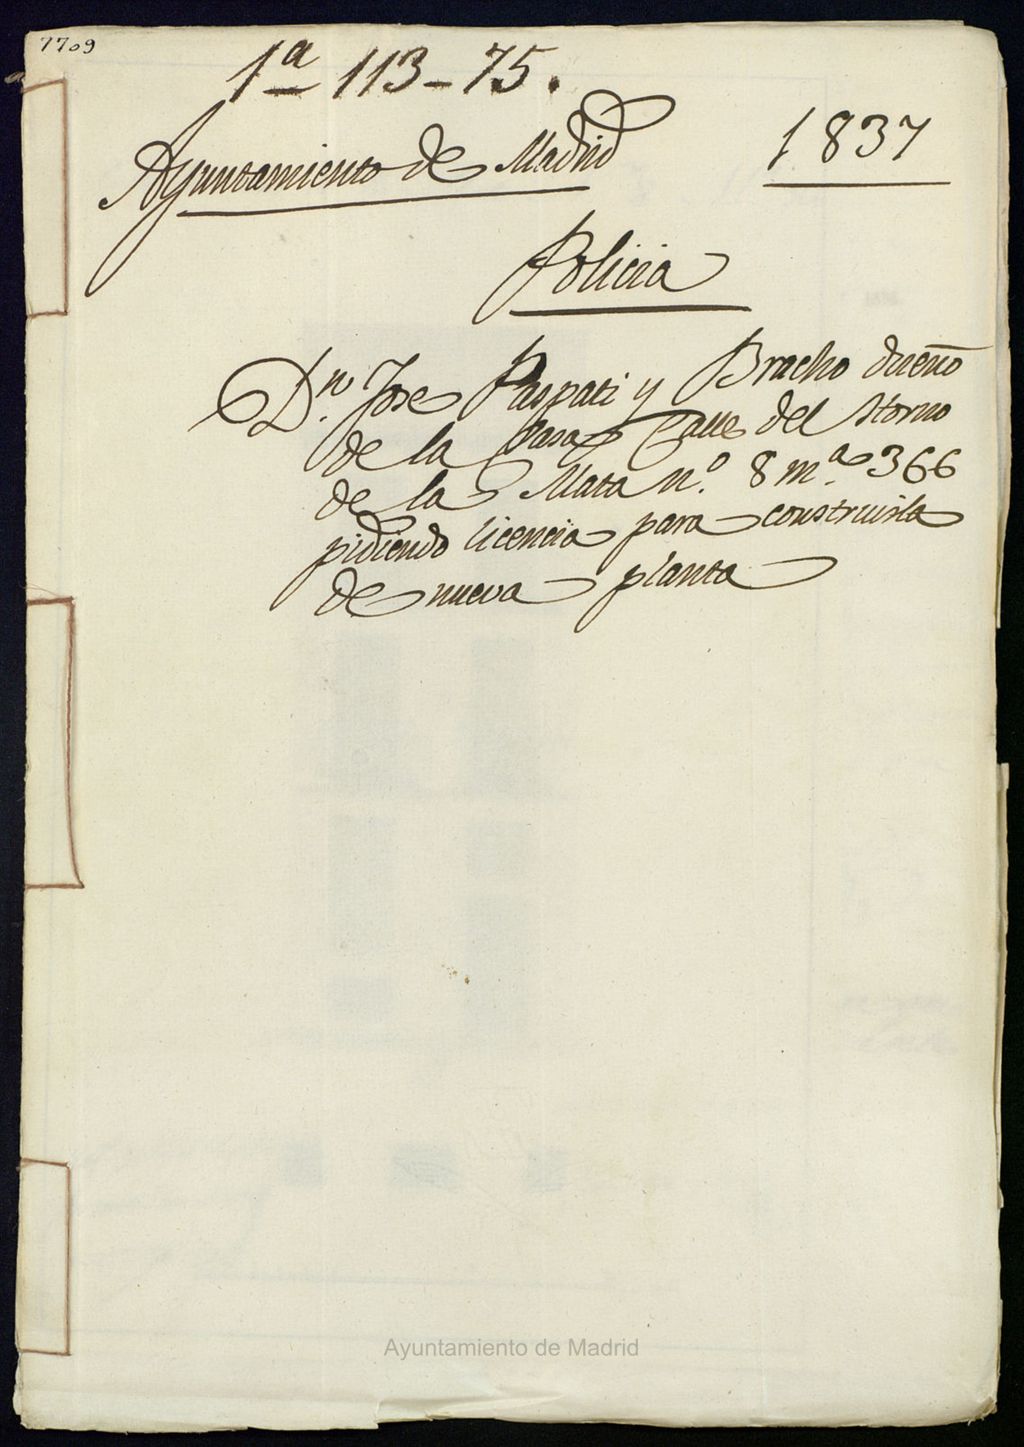 7709
1ª 113-75.
Ayuntamiento de Madrid
1837
Policia
Dn. Jose Paspati y Bracho dueño
de la Casa Calle del Horno
de la Mata nº. 8 mª. 366
pidiendo licencia para construirla
de nueva planta
Ayuntamiento de Madrid